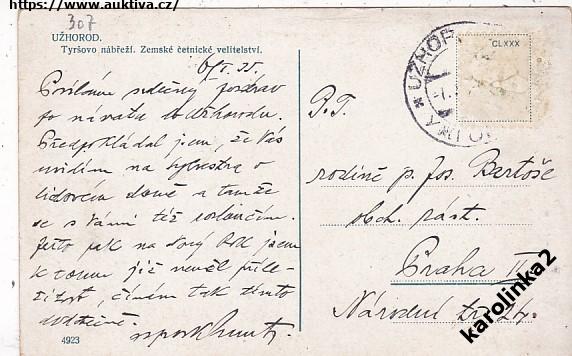 https://www.auktiva.cz/
307
UŽHOROD.
Tyršovo nábřeží. Zemské četnické velitelství.
6/I. 35.
Posílám srdečný pozdrav
po návratu do Užhorodu.
Předpokládal jsem, že Vás
uvidím na Sylvestra v
lidovém domě a tamže
se s Vámi též rozloučím.
Jerto pak na Nový Rok jsem
k tomu již neměl příle-
žitost, činím tak tímto
dodatečně.
4923
CLXXX
UŽHOROD
P.T.
rodině p. Jos. Bartoše
obch. rást.
Praha II
Národní tř. 24.
karolinka2